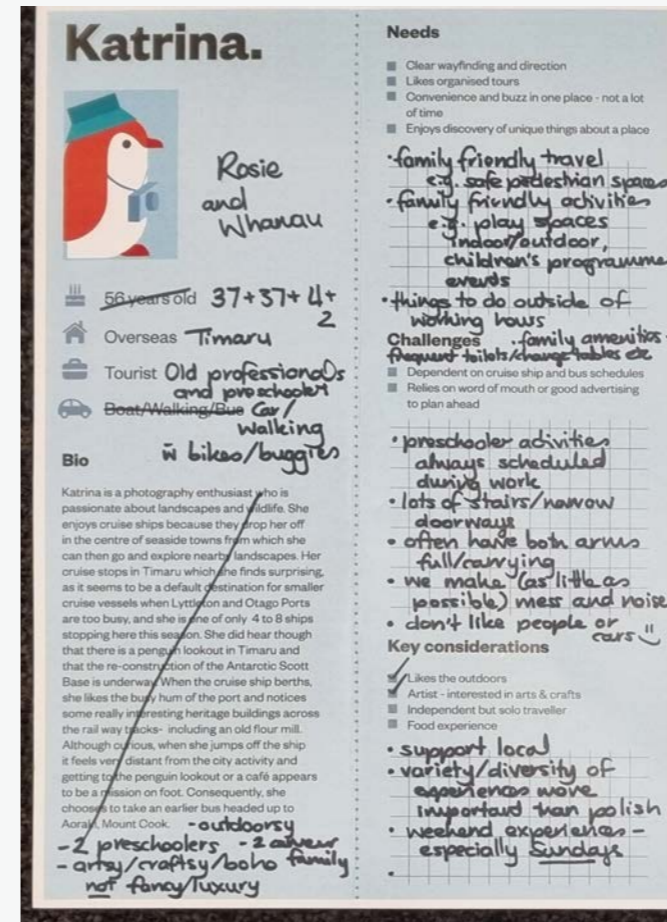 Katrina.
Rosie
and
Whanau
56 years old 37+37+4+
2
Overseas Timaru
Tourist Old professionals
and preschooler
Boat/Walking/Bus Car/
Walking
w̄ bikes/buggies
Bio
Katrina is a photography enthusiast who is
passionate about landscapes and wildlife. She
enjoys cruise ships because they drop her off
in the centre of seaside towns from which she
can then go and explore nearby landscapes. Her
cruise stops in Timaru which she finds surprising,
as it seems to be a default destination for smaller
cruise vessels when Lyttleton and Otago Ports
are too busy, and she is one of only 4 to 8 ships
stopping here this season. She did hear though
that there is a penguin lookout in Timaru and
that the re-construction of the Antarctic Scott
Base is underway. When the cruise ship berths,
she likes the busy hum of the port and notices
some really interesting heritage buildings across
the rail way tracks- including an old flour mill.
Although curious, when she jumps off the ship
it feels very distant from the city activity and
getting to the penguin lookout or a café appears
to be a mission on foot. Consequently, she
chooses to take an earlier bus headed up to
Aoraki, Mount Cook. -outdoorsy
-2 preschoolers -2
-artsy/craftsy/boho family
not fancy/luxury
Needs
Clear wayfinding and direction
Likes organised tours
Convenience and buzz in one place - not a lot
of time
Enjoys discovery of unique things about a place
•family friendly travel
e.g. safe pedestrian spaces
•family friendly activities
e.g. play spaces
indoor/outdoor,
children's programme
events
•things to do outside of
working hours
Challenges •family amenities -
frequent toilets/change tables etc
Dependent on cruise ship and bus schedules
Relies on word of mouth or good advertising
to plan ahead
•preschooler activities
always scheduled
during work
•lots of stairs/narrow
doorways
•often have both arms
full/carrying
•we make (as little as
possible) mess and noise
•don't like people or
cars
Key considerations
Likes the outdoors
Artist - interested in arts & crafts
Independent but solo traveller
Food experience
•support local
•variety/diversity of
experiences more
important than polish
•weekend experiences -
especially Sundays